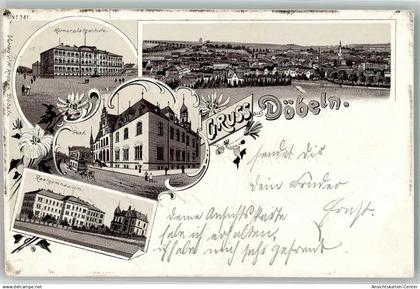 No 781.
Körnerplatzschule.
Post.
GRUSS
Döbeln.
Realgymnasium.
sendet dir
dein Bruder
Ernst.
deine Ansichtskarte
habe ich erhalten,
ich habe mich sehr gefreut
Ansichtskarten-Center